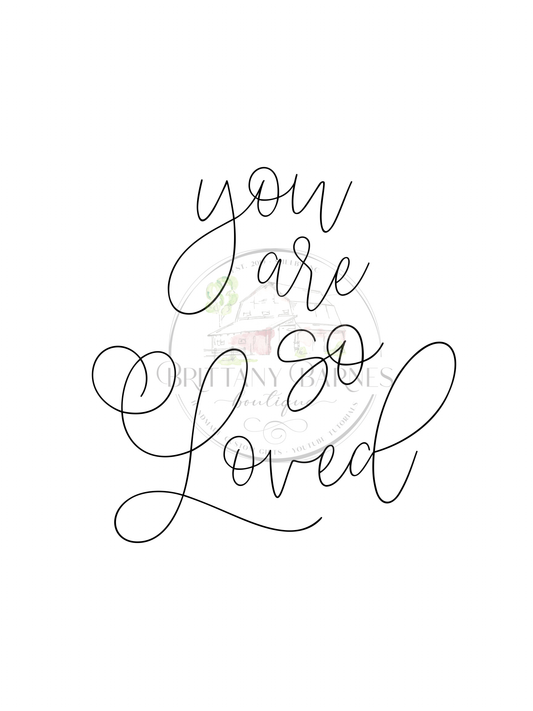 you
are
so
Loved
BRITTANY BARNES
boutique